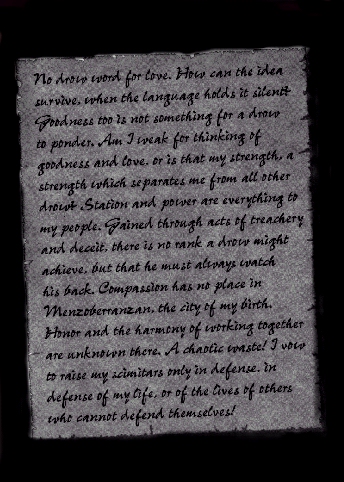 No drow word for love. How can the idea
survive, when the language holds it silent?
Goodness too is not something for a drow
to ponder. Am I weak for thinking of
goodness and love, or is that my strength, a
strength which separates me from all other
drow? Station and power are everything to
my people. Gained through acts of treachery
and deceit, there is no rank a drow might
achieve, but that he must always watch
his back. Compassion has no place in
Menzoberranzan, the city of my birth.
Honor and the harmony of working together
are unknown there. A chaotic waste! I vow
to raise my scimitars only in defense, in
defense of my life, or of the lives of others
who cannot defend themselves!